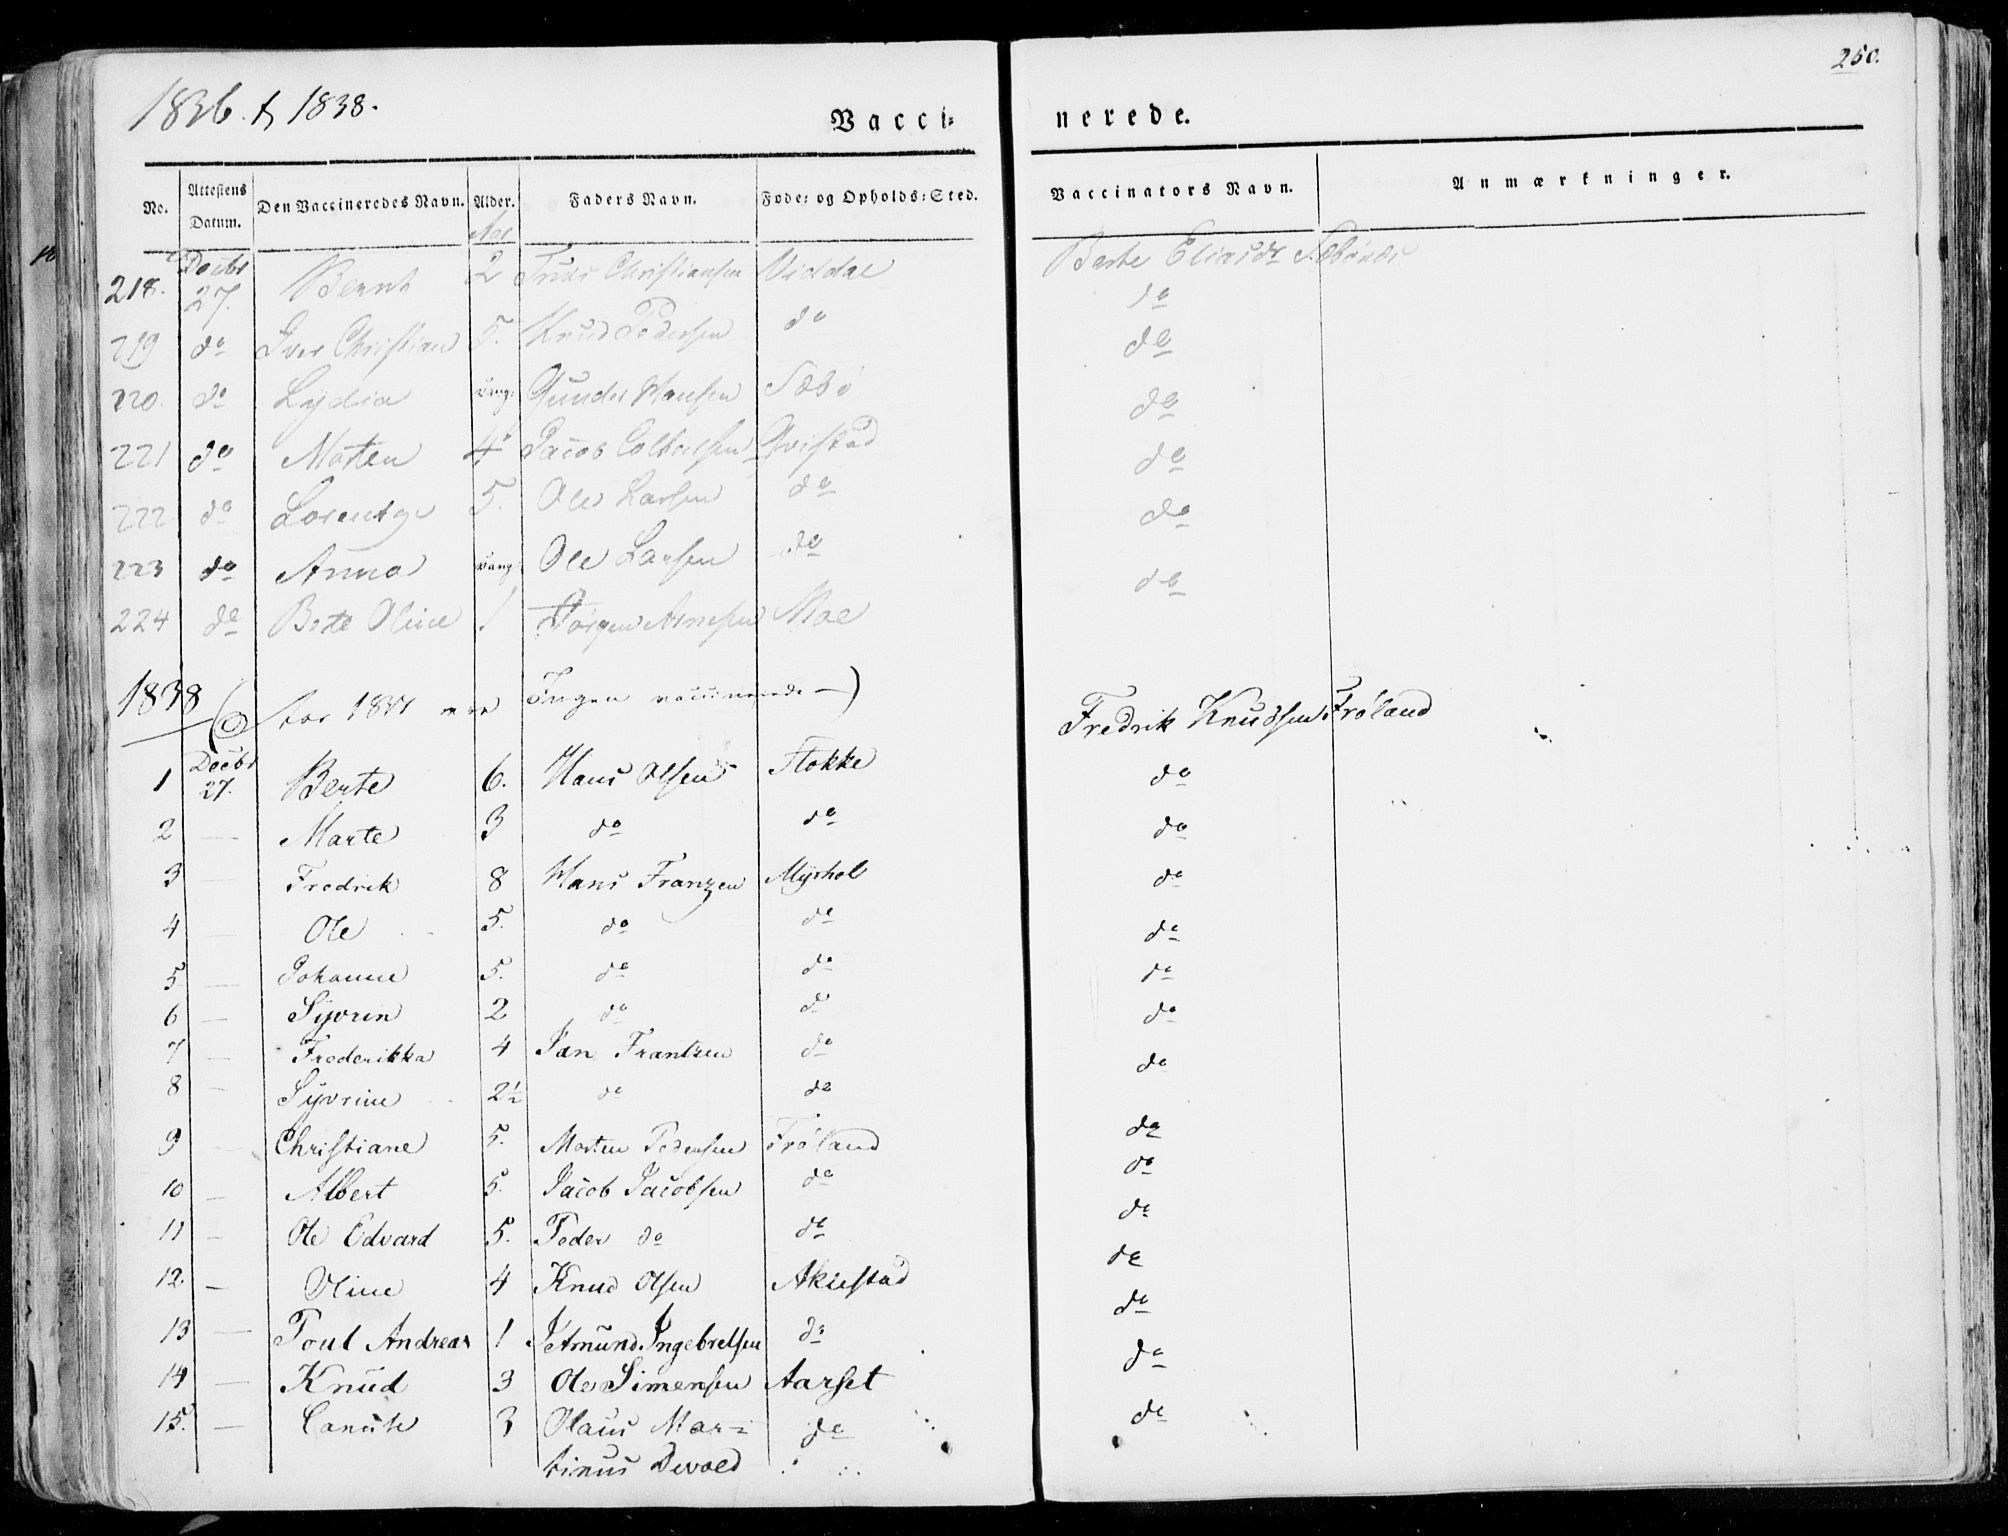 250.
1836. & 1838.
Vacci= nerede.
No. Attestens Datum. Den Vaccineredes Navn. Alder. Faders Navn. Føde= og Opholds=Sted. Vaccinators Navn. Anmærkninger.
Aar
218. Decbr 27. Bernt 2 Christiansen Viddal Berte Eliasdr Sæbønes
do
219 do Iver Christian 5. Knud Pedersen do do
220. do Lydia vang: Gunder Hansen Sæbø do
221 do Morten 4 Jacob Qvistad do
222 do Lorentze 5. Ole Larsen do do
223 do Anna vang: Ole Larsen do do
224 do Berte Oline 1 Jørgen Arnesen Moe
1838 ( for Ingen vaccinerede —)
Fredrik Knudsen Frøland
1 Decbr 27. Berte 6. Hans Olsen Flokke do
2 — Marte 3 do do do
3 — Fredrik 8 Hans Franzen Myrhol do
4 — Ole 5. do do do
5 — Johanne 5. do do do
6 — Syvrin 2 do do do
7 — Frederikka 4 Jan Frantzen do do
8 — Syvrine 2½ do do
9 — Christiane 5. Morten Pedersen Frøland do
10 — Albert 5. Jacob Jacobsen do do
11 — Ole Edvard 5. Peder do do do
12. — Oline 4 Knud Olsen Aklestad do
13 — Poul Andreas 1 Jetmund Ingebretsen do do
14 — Knud 3 Ole Simensen Aarset do
15. — Canute 3 Olaus Mar= do do
tinus Devold